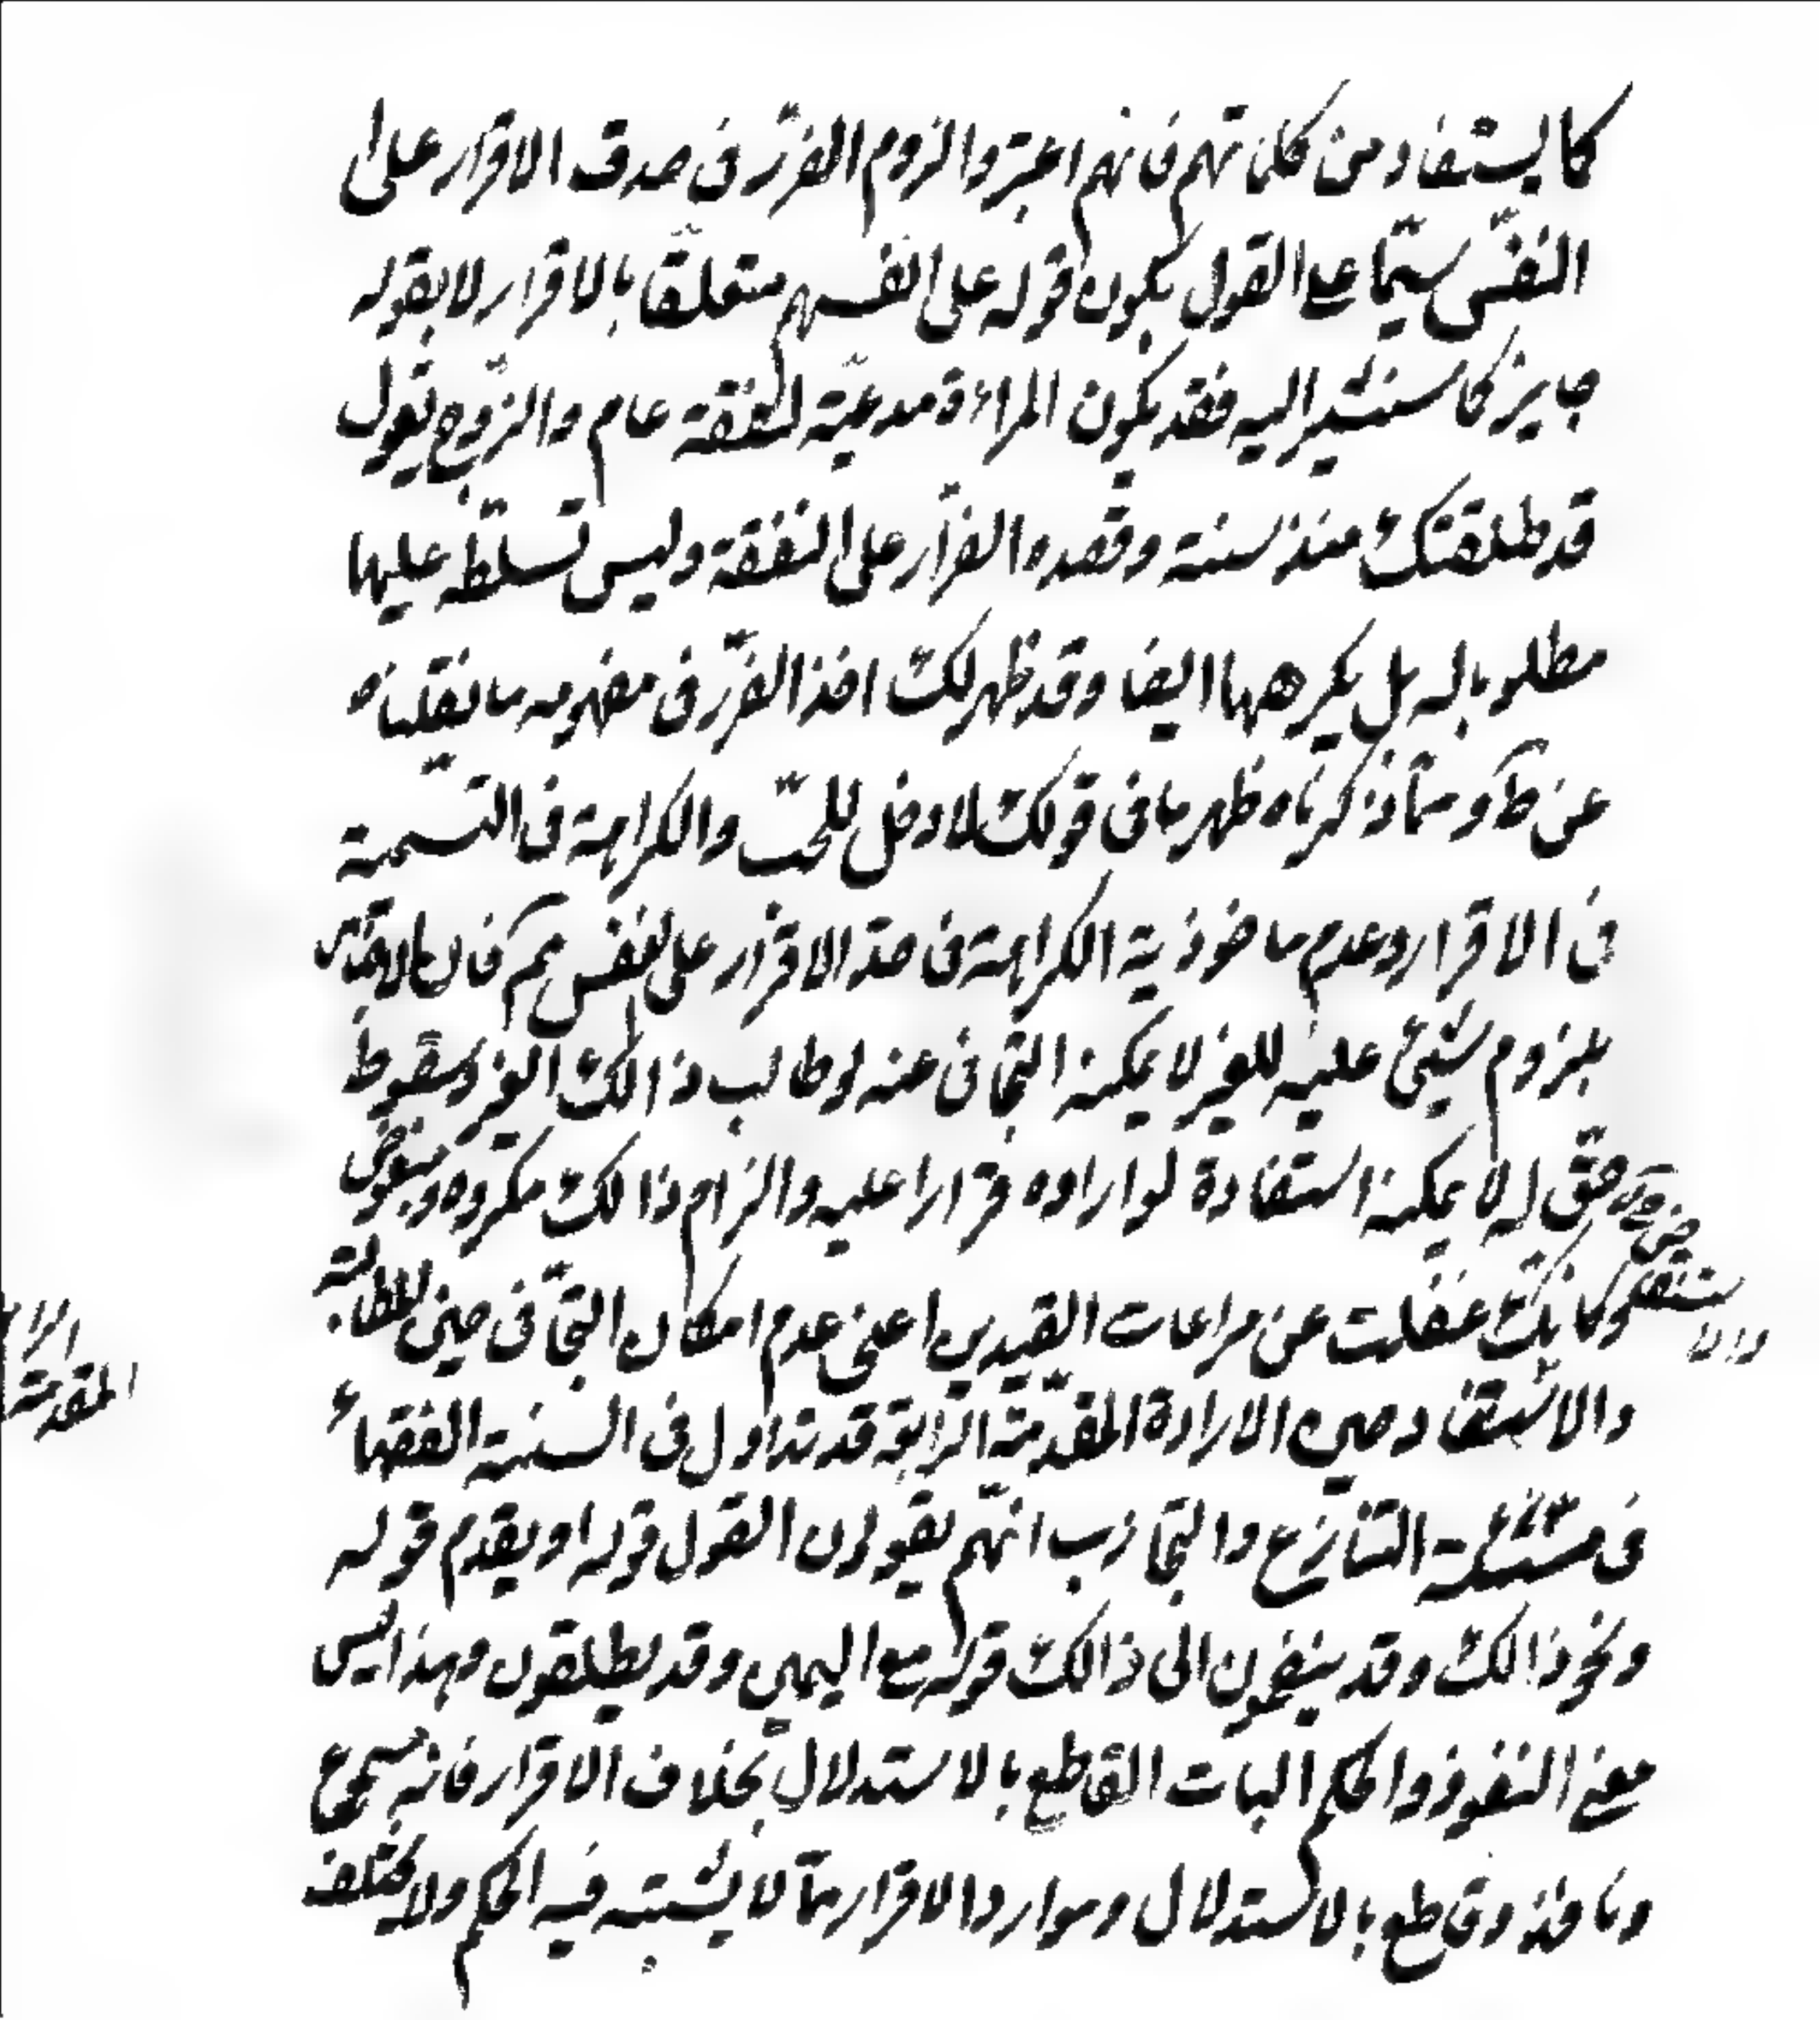 كما يستفاد من كلماتهم فانهم اعتبروا لزوم الضرر فى صدق الاقرار على
النفس سيّما على القول بكون قوله على انفسهم متعلقا بالاقرار لا بقوله
جايز كما سنشير اليه فقد يكون المراءة مدعيّة لنفقة عام والزوج يقول
قد طلقتك منذ سنة وقصده الفرار على النفقة وليس تسلطه عليها
مطلوبا له بل يكرهها ايضا وقد ظهر لك اخذ الضرر فى مفهومه ما نقلناه
عن وممّا ذكرناه ظهر ما فى قولك لا دخل للحبّ والكراهة فى التسمية
فى الاقرار وعدم ماخوذية الكراهة فى حدّ الاقرار على نفس ثم فان الاقرار
بلزوم شيئ عليه للغير لا يمكنه التجافى عنه لو طالب ذالك الغير وسقوط
حق له لا يمكنه استفادة لو اراده قرارا عليه والزام ذالك مكروه ومبغوض
وكانك غفلت عن مراعات القيدين اعنى عدم امكان التجافى حين المطالبة
والاستفاد حين الارادة المقدّمة الرّابعة قد تداول فى السنة الفقهاء
فى مسئلة التنازع والتجاذب انهم يقولون القول قوله او يقدم قوله
ونحو ذالك وقد ينضمون الى ذالك قوله مع اليمين وقد يطلقون وهذا ليس
معنى النفوذ والحكم البات القاطع بالاستدلال بخلاف الاقرار فانه مسموع
ونافذ وقاطع بالاستدلال وموارد الاقرار ممّا لا يشتبه فيه الحكم ولا يختلف
المقدمة